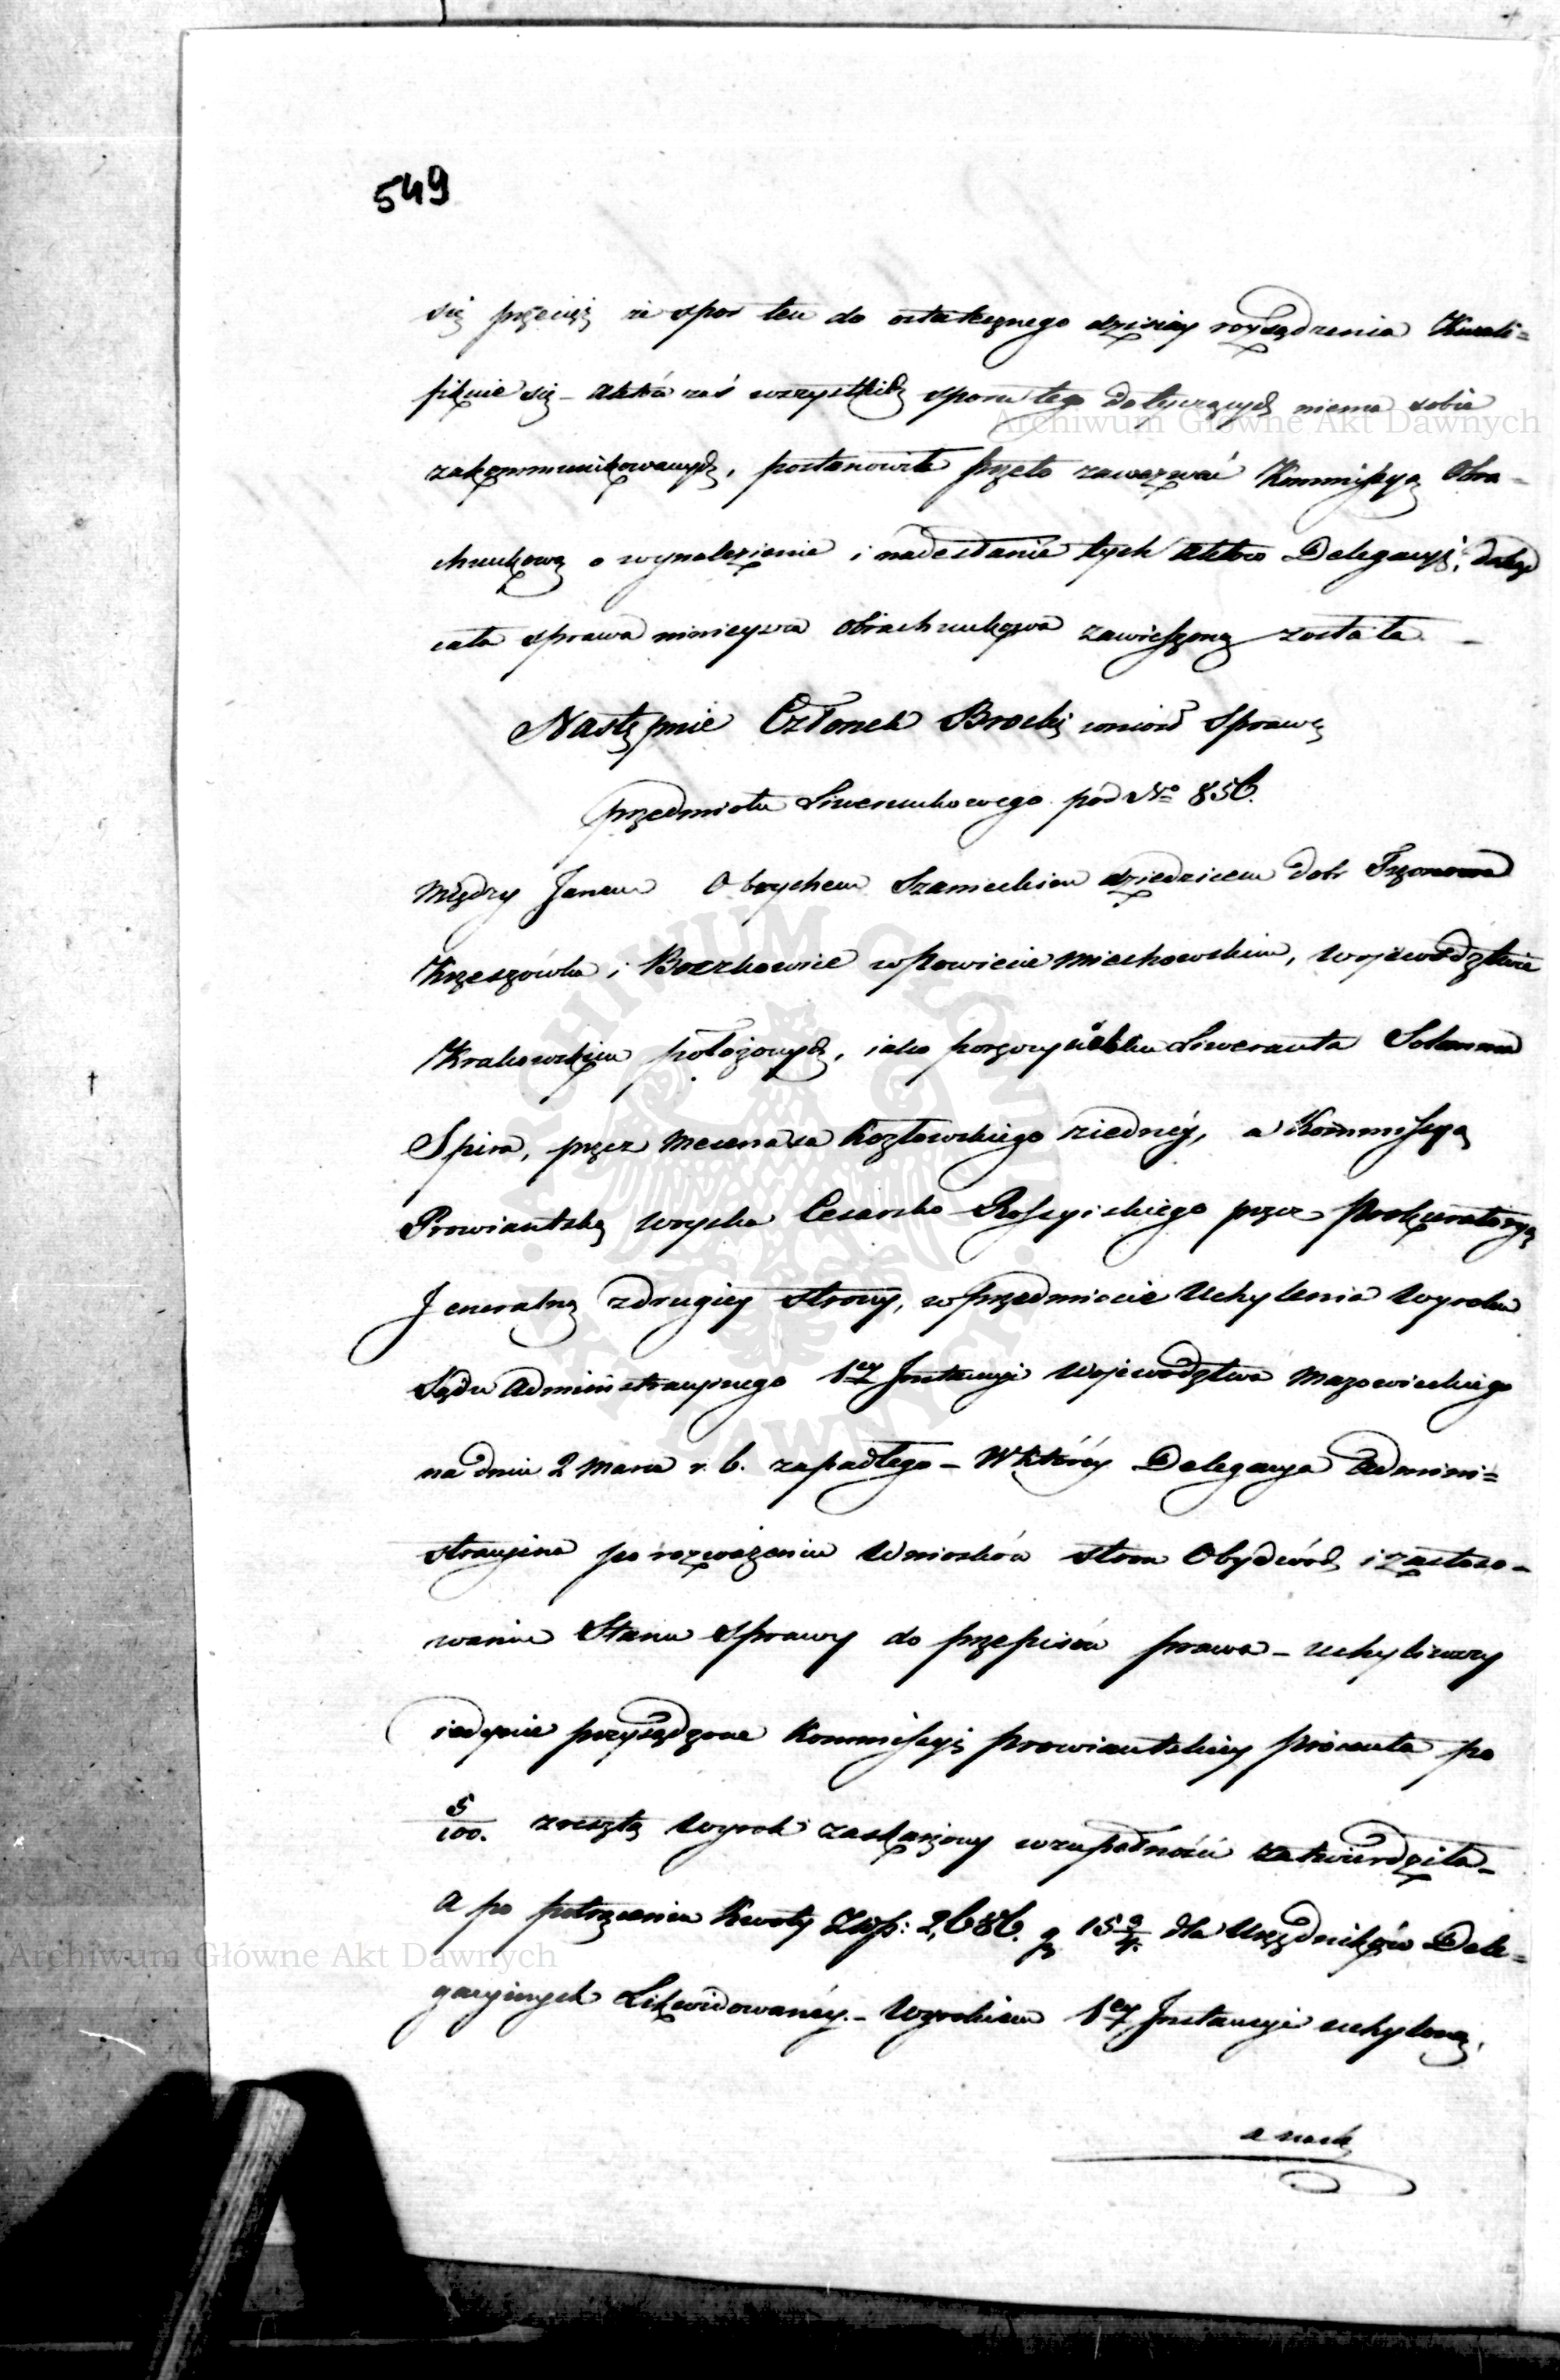 549
się przecięż że spór ten do ostatecznego dzisiay rozsądzenia Kwali=
fikuie się – Aktów zaś wszystkich sporu tego dotyczących niema sobie
zakommunikowanych, postanowiła przeto zawezwać Kommissyą Obra-
chunkową o wynalezienie i nadesłanie tych Aktów Delegacyi,
cała sprawa ninieysza obrachunkowa zawieszoną została –
Następnie Członek Brocki wniósł Sprawę
przedmiotu Liwerunkowego pod No 856.
Między Janem Olrychem Szanieckim dziedzicem dobr
Krzeszówka i Boczkowice w Powiecie Miechowskim, Województwie
Krakowskim położonych, iako Liweranta
Spira, przez Mecenasa Kozłowskiego ziedney, a Kommissyą
Prowiantską Woyska Cesarsko Rossyiskiego przez Prokuratoryą
Jeneralną zdrugiey strony, w przedmiocie Uchylenia Wyroku
Sądu Administracyinego 1ey Instancyi Województwa Mazowieckiego
na dniu 2 Marca r. b. zapadłego – W którey Delegacya Admini=
stracyina po rozważeniu Wniosków stron Obydwóch i zastoso-
waniu Stanu Sprawy do przepisów prawa – uchyliwszy
iedynie przysądzone Kommissyi prowiantskiey procenta po
5/100. zresztą Wyrok zaskarżony w zupełności zatwierdziła –
A po potrąceniu Kwoty Złłp: 2,686. gr 15 dla Urzędników Dele=
gacyinych Likwidowaney. – Wyrokiem 1ey Instancyi uchyloney,
a nach
Archiwum Główne Akt Dawnych
Archiwum Główne Akt Dawnych
ARCHIWUM GŁÓWNE AKT DAWNYCH